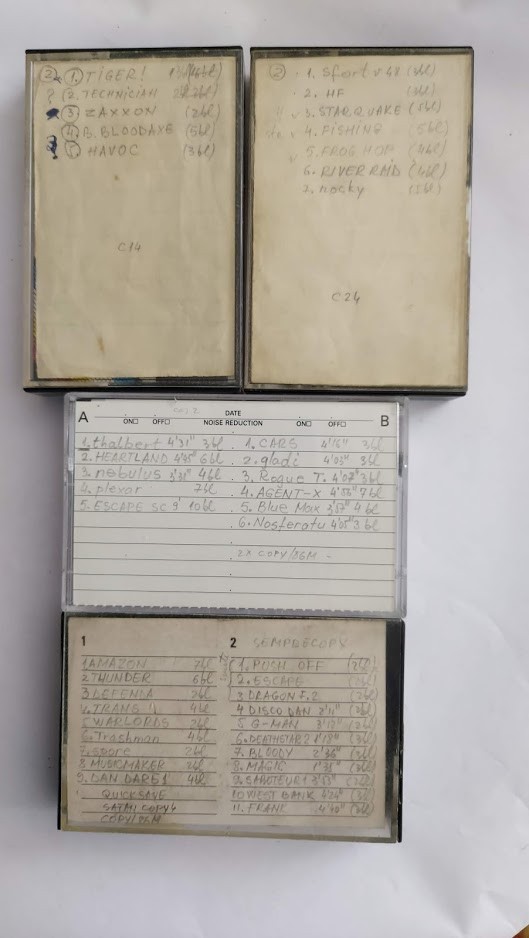 ② ① TIGER!
? ② TECHNICIAN
③ ZAXXON (2bl)
④ B. BLOODAXE (5bl)
⑤ HAVOC (3bl)
C14
② 1. Sport v 4x
2. HF
3. STARQUAKE
4. FISHING (5bl)
v 5. FROG HOP (4bl)
6. RIVER RAID (4bl)
7. nocky
C24
A DATE B
ON OFF NOISE REDUCTION ON OFF
1. thalbert 4'31" 3bl
2. HEARTLAND 6bl
3. nebulus 4bl
4. plexor 7bl
5. ESCAPE SC. 9' 10bl
1. CARS 4'16" 3bl
2. gladi 4'05" 3bl
3. Rogue T. 4'07" 3bl
4. AGENT-X 4'58" 7bl
5. Blue Max 3'57" 4bl
6. Nosferatu 4'05" 3bl
ZX COPY/86M -
1
1 AMAZON 7bl
2 THUNDER 6bl
3 DEFENDA 2bl
4. TRANS 4bl
5 WARLORDS 2bl
6. Trashman 4bl
7. spore 2bl
8 MUSICMAKER 2bl
9. DAN DARE 1 4bl
QUICKSAVE
COPY/86M
2 SEMPRECOPY
1. PUSH OFF (2bl)
2. ESCAPE
3 DRAGON F. 2 (2bl)
4 DISCO DAN 2'4"
5 G-MAN 3'12"
6. DEATHSTAR 2 (3bl)
7. BLOODY 2'36"
8. MAGIC 1'38"
9. SABOTEUR 1
10 WEST BANK 4'24"
11. FRANK 4'40"